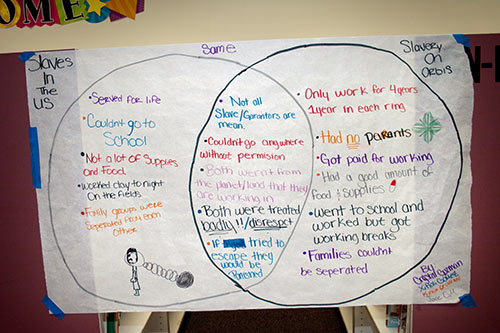 OME
Slaves
In
the
US
Same
Slavery On
Orbis
• Served for life
• Couldn't go to
School
• Not a lot of Supplies
and Food.
• Worked day to night
On the fields
• Family groups were
Seperated from each
Other
• Not all
Slave/Garantors are
mean.
• Couldn't go anywhere
without permision
• Both weren't from
the planet/land that they
are working in
• Both were treated
badly!!/disrespct
• If tried to
escape they
would be
Punished
• Only work for 4 years
1 year in each ring
• Had no parents
• Got paid for working
• Had a good amount of
food & Supplies
• went to School and
worked but got
working breaks
• Families couldn't
be seperated
By
Guzmin